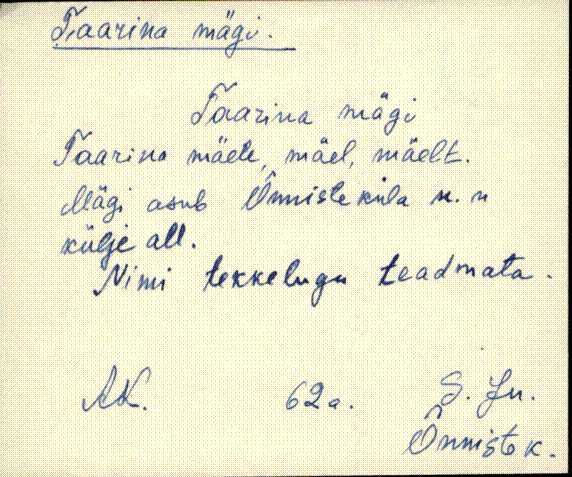 Taarina mägi.
Taarina mägi
Taarina mäele, mäel, mäelt.
Mägi asub Õnniste küla n. n
külje all.
Nimi tekkelugu teadmata.
AK. 62a. S. Ju.
Õnniste k.